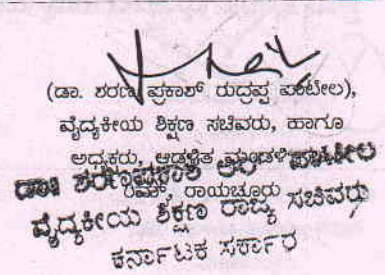 (ಡಾ. ಶರಣ ಪ್ರಕಾಶ್ ರುದ್ರಪ್ಪ ಪಾಟೀಲ),
ವೈದ್ಯಕೀಯ ಶಿಕ್ಷಣ ಸಚಿವರು, ಹಾಗೂ
ಅಧ್ಯಕ್ಷರು, ಆಡಳಿತ ಮಂಡಳಿ
ರಿಮ್ಸ್, ರಾಯಚೂರು
ಡಾ. ಶರಣಪ್ರಕಾಶ ಆರ್ ಪಾಟೀಲ
ವೈದ್ಯಕೀಯ ಶಿಕ್ಷಣ ರಾಜ್ಯ ಸಚಿವರು
ಕರ್ನಾಟಕ ಸರ್ಕಾರ